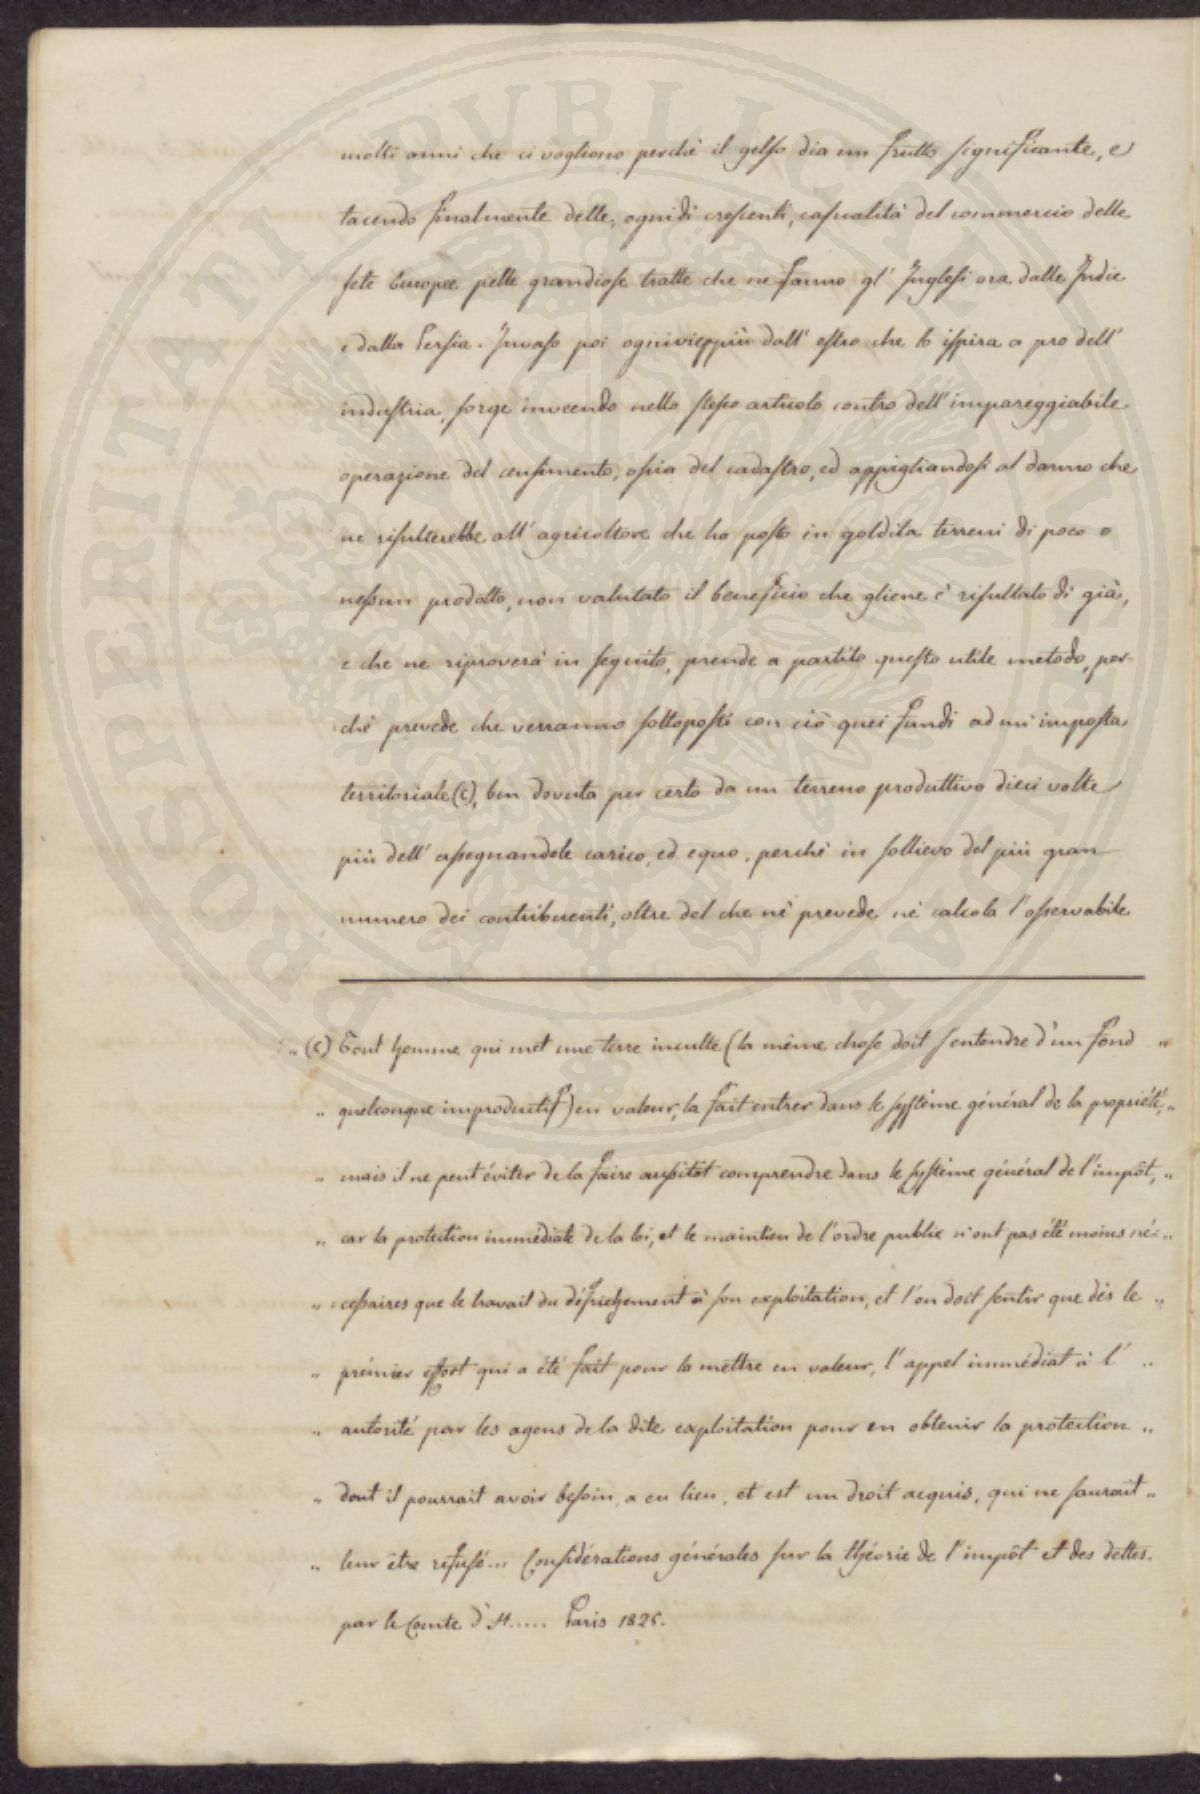 molti anni che ci vogliono perchè il gelso dia un frutto significante, e
tacendo finalmente delle, ognidi crescenti, casualità del commercio delle
sete Europee pelle grandiose tratte che ne fanno gl' Inglesi ora dalle Indie
e dalla Persia. Invaso poi ognivieppiù dall' estro che lo ispira a pro dell'
industria, sorge inveendo nello stesso articolo contro dell' impareggiabile
operazione del censimento, ossia del cadastro, ed appigliandosi al danno che
ne risulterebbe all' agricoltore che ha posto in goldita terreni di poco o
nessun prodotto, non valutato il beneficio che gliene è risultato di già,
e che ne riproverà in seguito, prende a partito questo utile metodo, per-
chè prevede che verranno sottoposti con ciò quei fundi ad un' imposta
territoriale (c), ben dovuta per certo da un terreno produttivo dieci volte
più dell' assegnandole carico, ed equo, perchè in sollievo del più gran
numero dei contribuenti, oltre del che nè prevede nè calcola l'osservabile
„ (c) Tout homme qui met une terre inculte (la même chose doit s'entendre d'un fond „
„ quelconque improductif) en valeur, la fait entrer dans le système général de la propriété, „
„ mais il ne peut éviter de la faire aussitôt comprendre dans le système général de l'impôt, „
„ car la protection immédiate de la loi, et le maintien de l'ordre public n'ont pas été moins né= „
„ =cessaires que le travail du défrichement à son exploitation, et l'on doit sentir que dès le „
„ prémier effort qui a été fait pour la mettre en valeur, l'appel immédiat à l' „
„ autorité par les agens de la dite exploitation pour en obtenir la protection „
„ dont il pourrait avoir besoin, a eu lieu, et est un droit acquis, qui ne saurait „
„ leur être refusé... Considérations générales sur la théorie de l'impôt et des dettes.
par le Comte d'H..... Paris 1825.
PROSPERITATI PUBLICAE